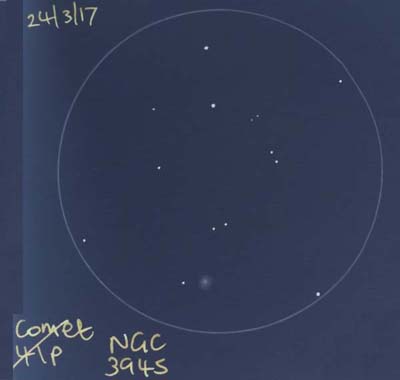 24/3/17
Comet
41p
NGC
3945